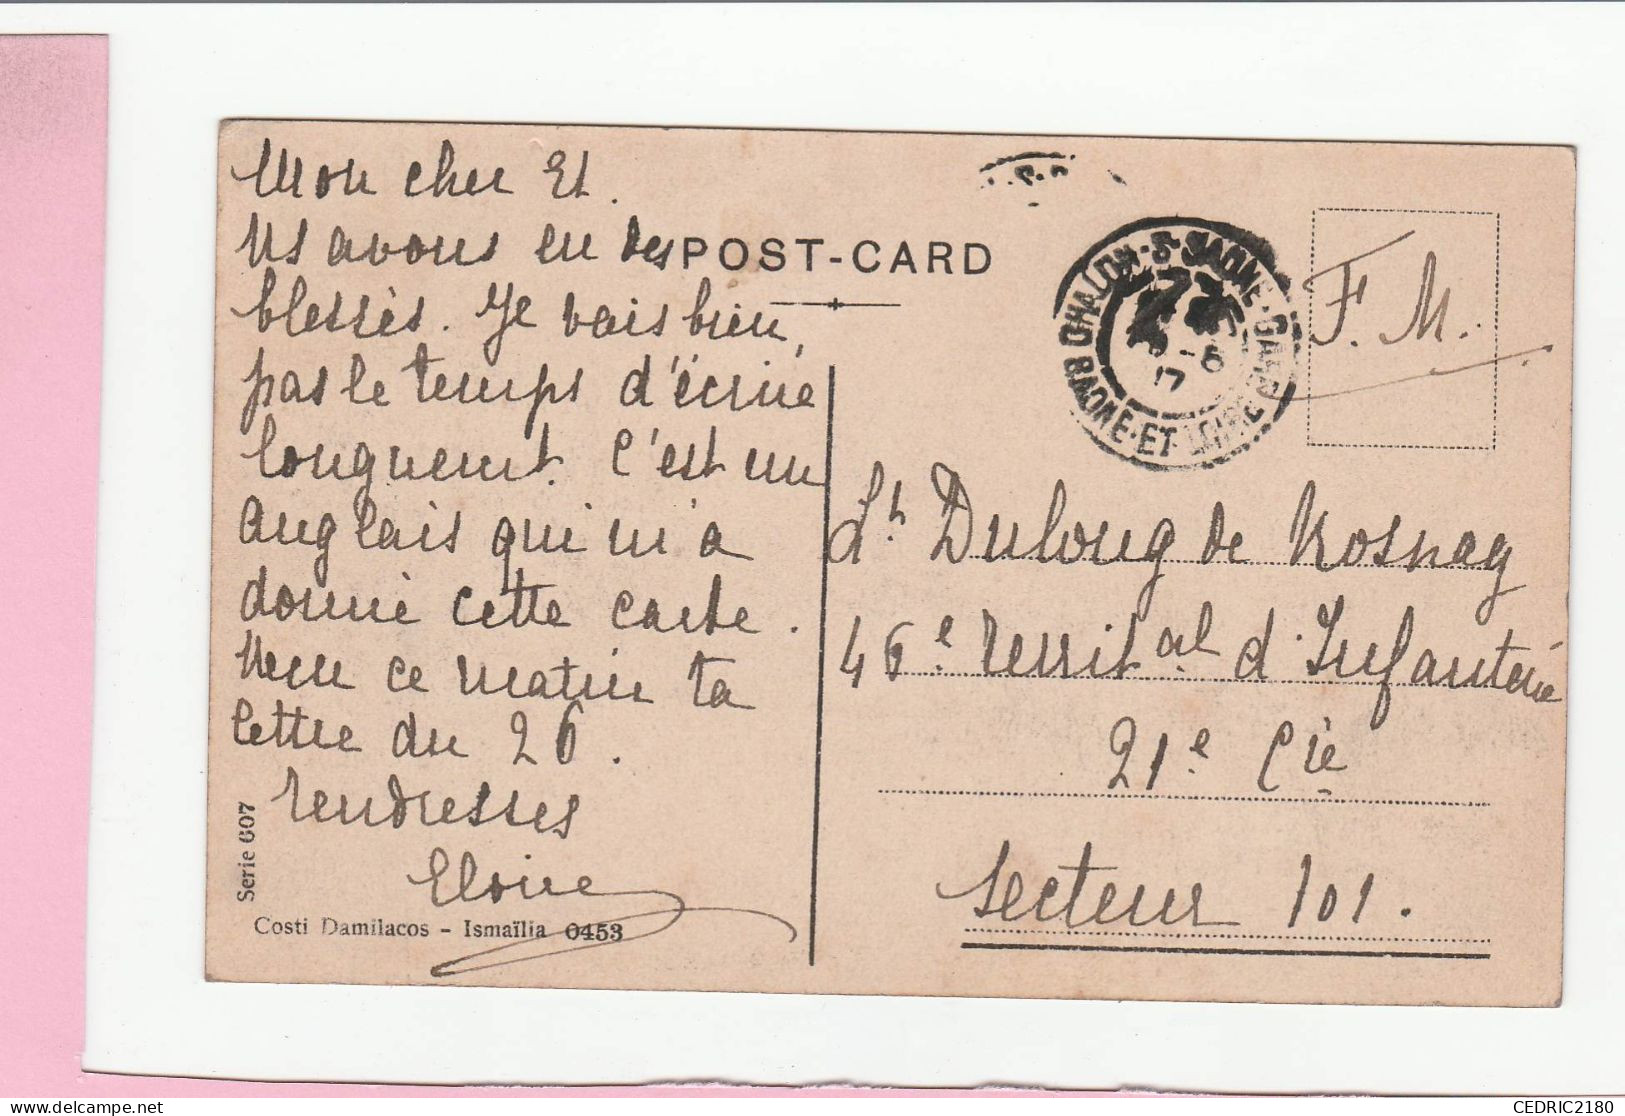 Mon cher Et.
Ns avons eu des
blessés. Je vais bien,
pas le temps d'écrire
longuement. C'est un
anglais qui m'a
donné cette carte.
Recu ce matin ta
lettre du 26.
Tendresses
Serie 607
Costi Damilacos - Ismaïlia 0453
POST-CARD
CHALON-S-SAONE-GARE
SAONE-ET-LOIRE
-8
17
F. M.
Lt Dulong de Rosnay
46e Territal d'Infanterie
21e Cie
Secteur 101.
CEDRIC2180